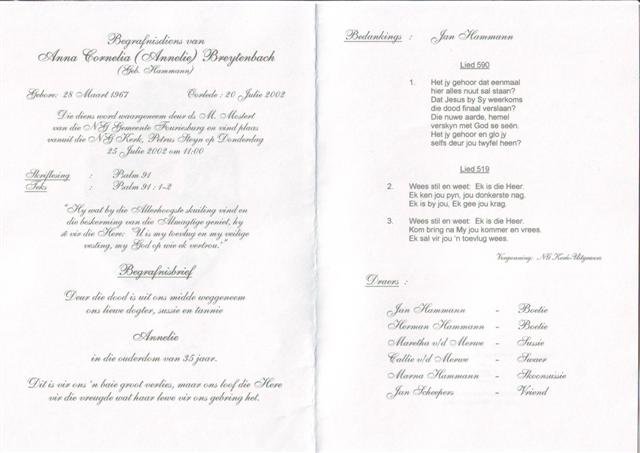 Begrafnisdiens van
Anna Cornelia (Annelie) Breytenbach
(Geb. Hammann)
Gebore: 28 Maart 1967 Oorlede: 20 Julie 2002
Die diens word waargeneem deur ds. M. Mostert
van die NG Gemeente Fouriesburg en vind plaas
vanuit die NG Kerk, Petrus Steyn op Donderdag
25 Julie 2002 om 11:00
Skriflesing : Psalm 91
Teks : Psalm 91 : 1-2
"Hy wat by die Allerhoogste skuiling vind en
die beskerming van die Almagtige geniet, hy
sê vir die Here: 'U is my toevlug en my veilige
vesting, my God op wie ek vertrou.'"
Begrafnisbrief
Deur die dood is uit ons midde weggeneem
ons liewe dogter, sussie en tannie
Annelie
in die ouderdom van 35 jaar.
Dit is vir ons 'n baie groot verlies, maar ons loof die Here
vir die vreugde wat haar lewe vir ons gebring het.
Bedankings : Jan Hammann
Lied 590
1. Het jy gehoor dat eenmaal
hier alles nuut sal staan?
Dat Jesus by Sy weerkoms
die dood finaal verslaan?
Die nuwe aarde, hemel
verskyn met God se seën.
Het jy gehoor en glo jy
selfs deur jou twyfel heen?
Lied 519
2. Wees stil en weet: Ek is die Heer.
Ek ken jou pyn, jou donkerste nag.
Ek is by jou, Ek gee jou krag.
3. Wees stil en weet: Ek is die Heer.
Kom bring na My jou kommer en vrees.
Ek sal vir jou 'n toevlug wees.
Vergunning: NG Kerk-Uitgewers
Draers :
Jan Hammann - Boetie
Herman Hammann - Boetie
Maretha v/d Merwe - Sussie
Callie v/d Merwe - Swaer
Marna Hammann - Skoonsussie
Jan Scheepers - Vriend